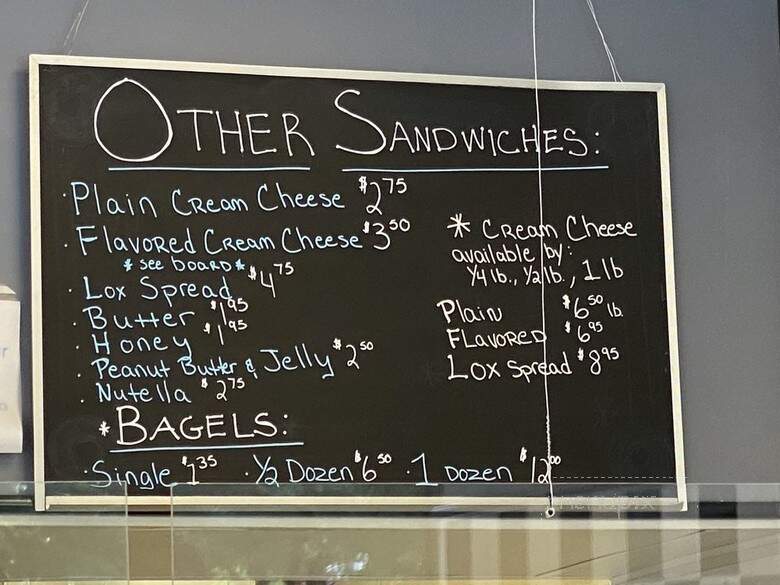 OTHER SANDWICHES:
· Plain Cream Cheese $2.75
· Flavored Cream Cheese $3.50
* see board *
· Lox Spread $4.75
· Butter $1.95
· Honey $1.95
· Peanut Butter & Jelly $2.50
· Nutella $2.75
* Cream Cheese
available by:
1/4 lb., 1/2 lb., 1 lb
Plain $6.50 lb.
Flavored $6.95
Lox Spread $8.95
* BAGELS:
· Single $1.35 · 1/2 Dozen $6.50 · 1 Dozen $12.00